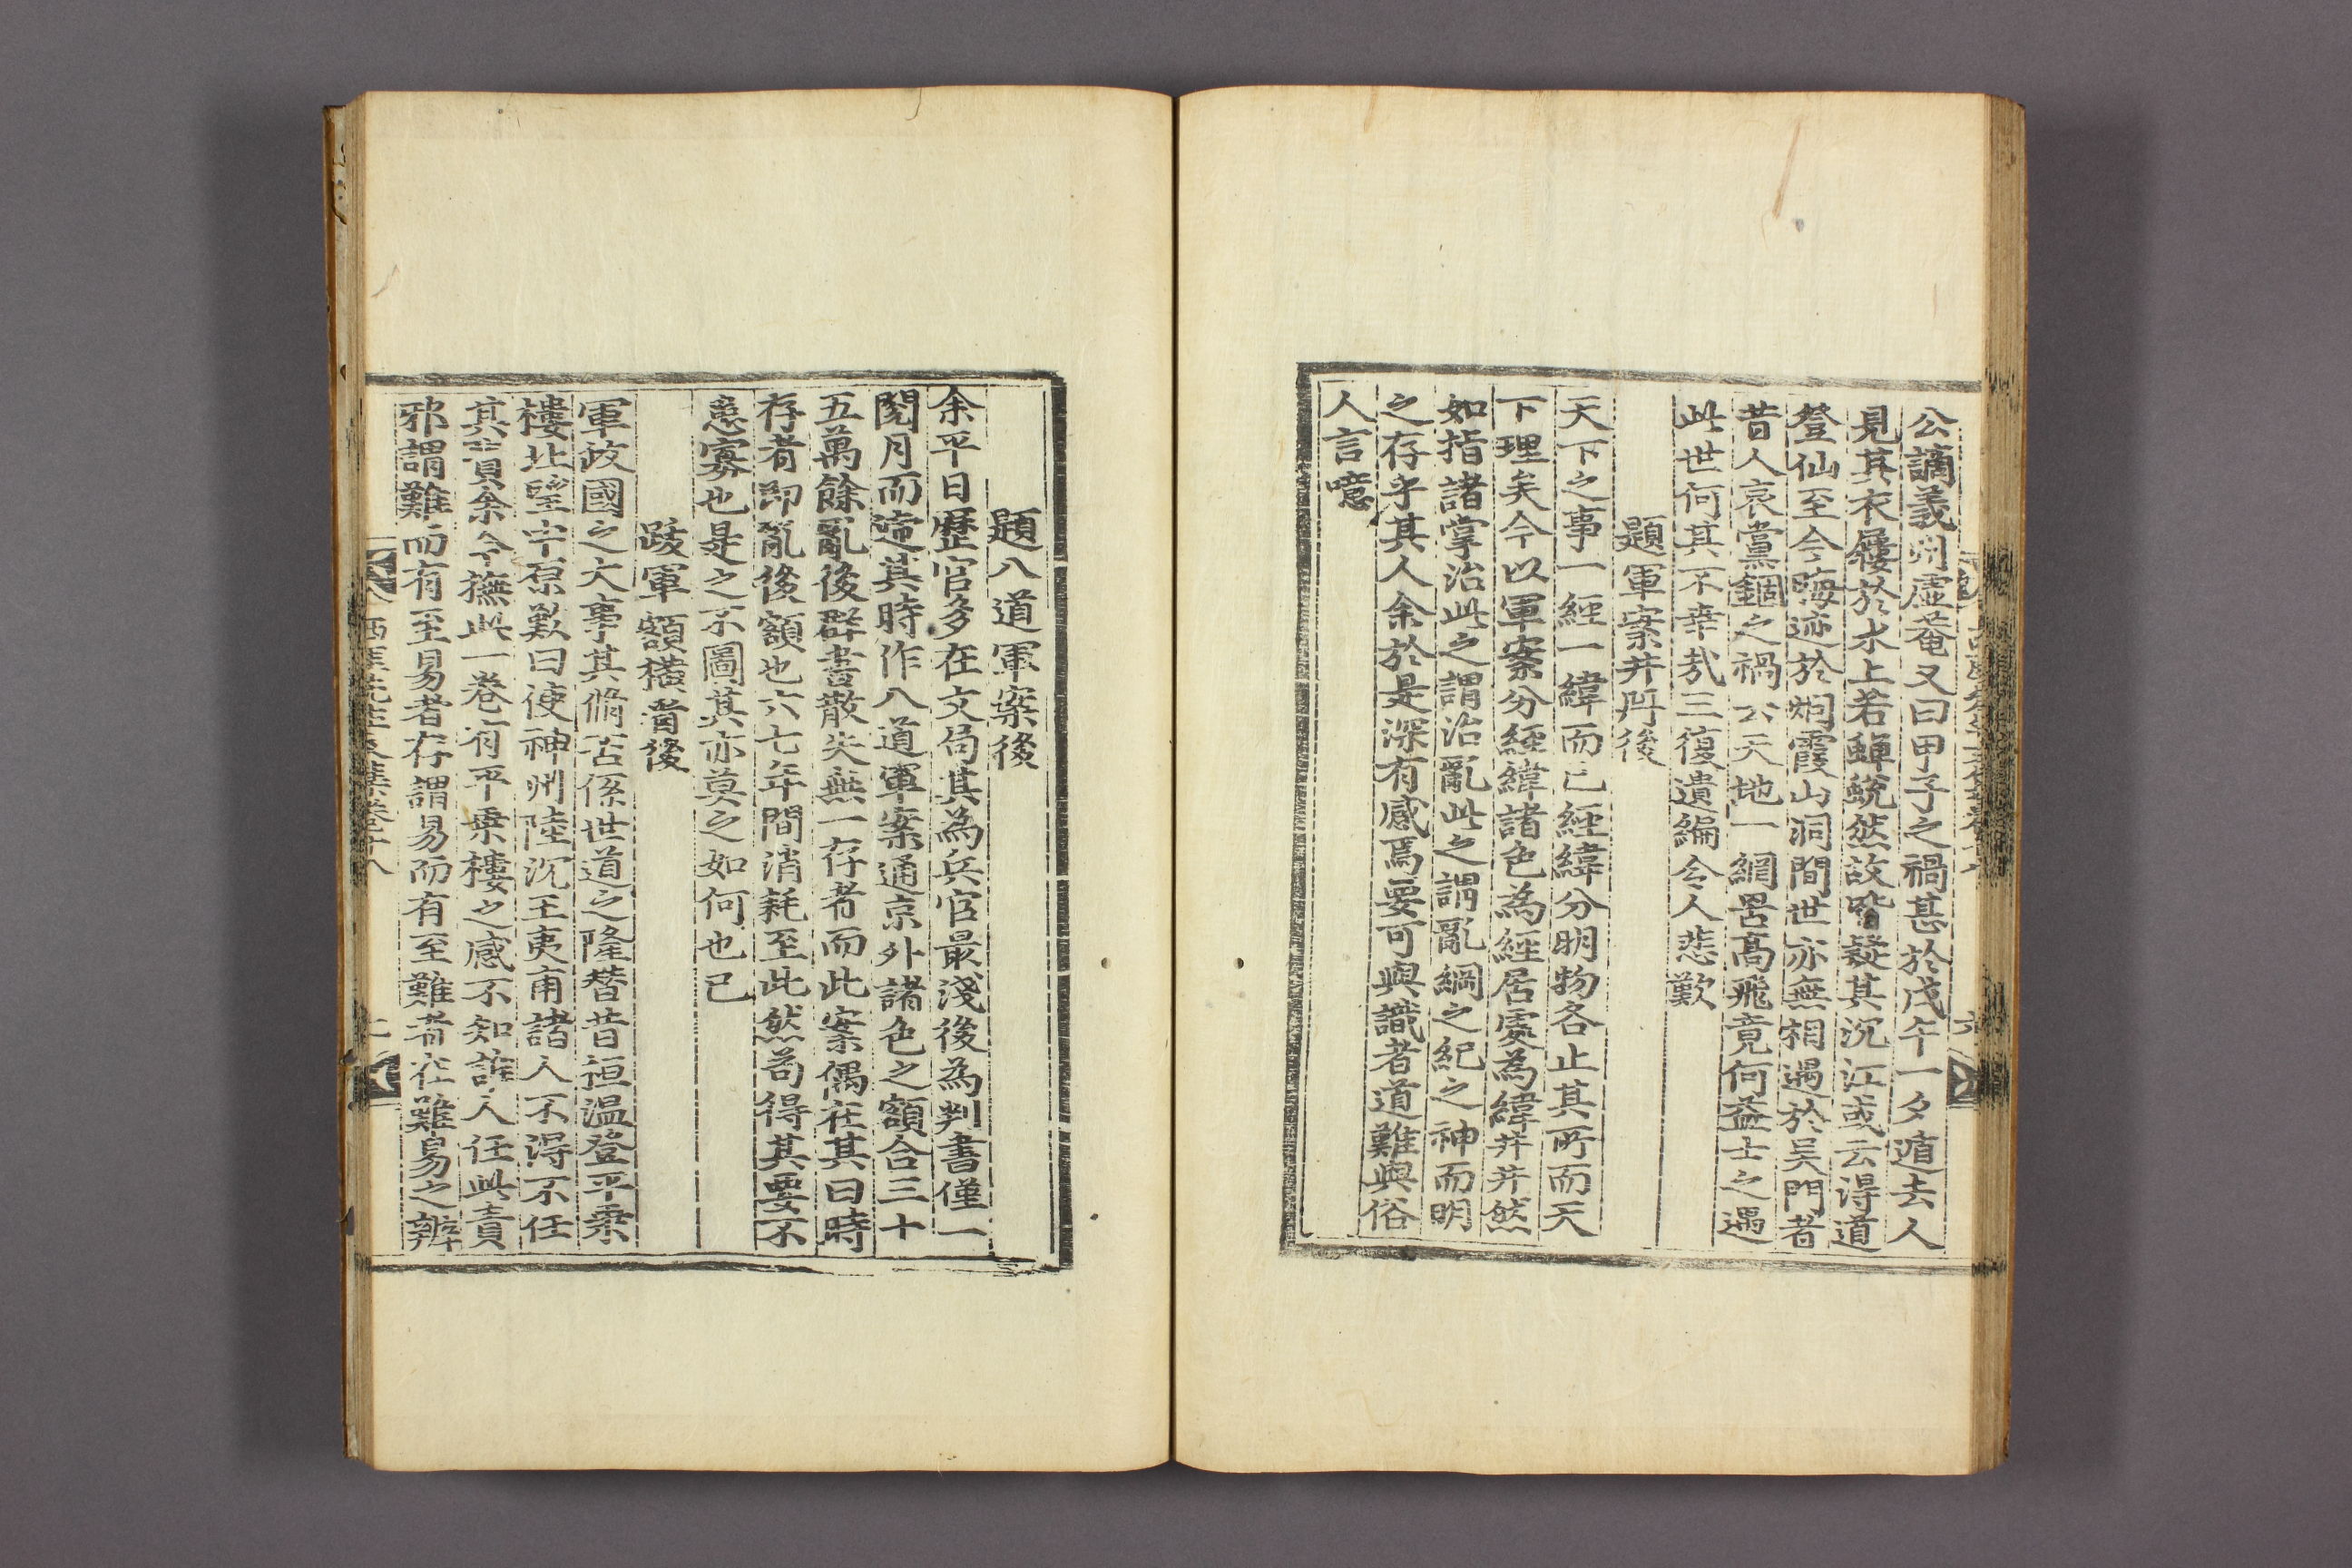 公謫義州虛菴又曰甲子之禍甚於戊午一夕遁去人
見其衣屨於水上若蟬蛻然故皆疑其沉江或云得道
登仙至今晦迹於烟霞山洞間世亦無相遇於吴門者
昔人哀黨錮之禍以天地一網罟高飛竟何益士之遇
此世何其不幸㢤三復遺編令人悲歎
題軍案井㘽後
天下之事一經一緯而已經緯分明物各止其所而天
下理矣今以軍案分經緯諸色為經居處為緯井井然
如指諸掌治此之謂治亂此之謂亂綱之紀之神而明
之存乎其人余於是深有感焉要可與識者道難與俗
人言噫
題八道軍案後
余平日歷官多在文局其為兵官最淺後為判書僅一
閱月而遞其時作八道軍案通京外諸色之額合三十
五萬餘亂後群書散失無一存者而此案偶在其曰時
存者即亂後額也六七年間消耗至此然苟得其要不
患寡也是之不圖其亦莫之如何也已
跋軍額橫看後
軍政國之大事其脩否係世道之隆替昔桓温登平乘
樓北望中原歎曰使神州陸沉王夷甫諸人不得不任
其責余今撫此一卷有平乘樓之感不知誰人任此責
邪謂難而有至易者存謂易而有至難者在難易之辨
西厓先生文集卷十八 七